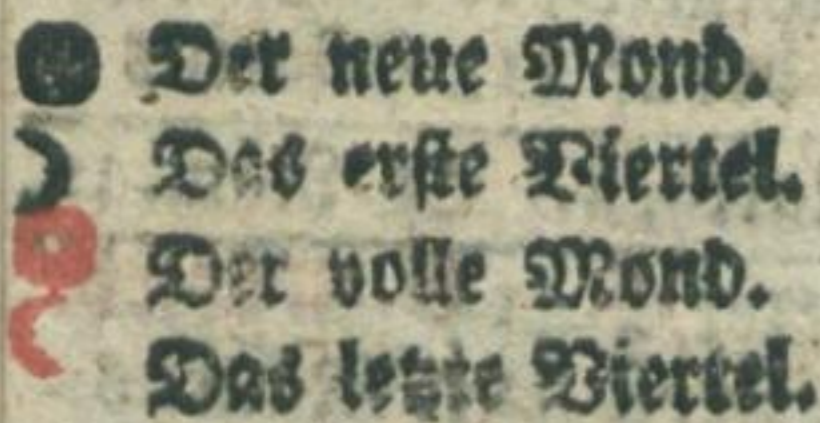 Der neue Mond.
Das erste Viertel.
Der volle Mond.
Das letzte Viertel.